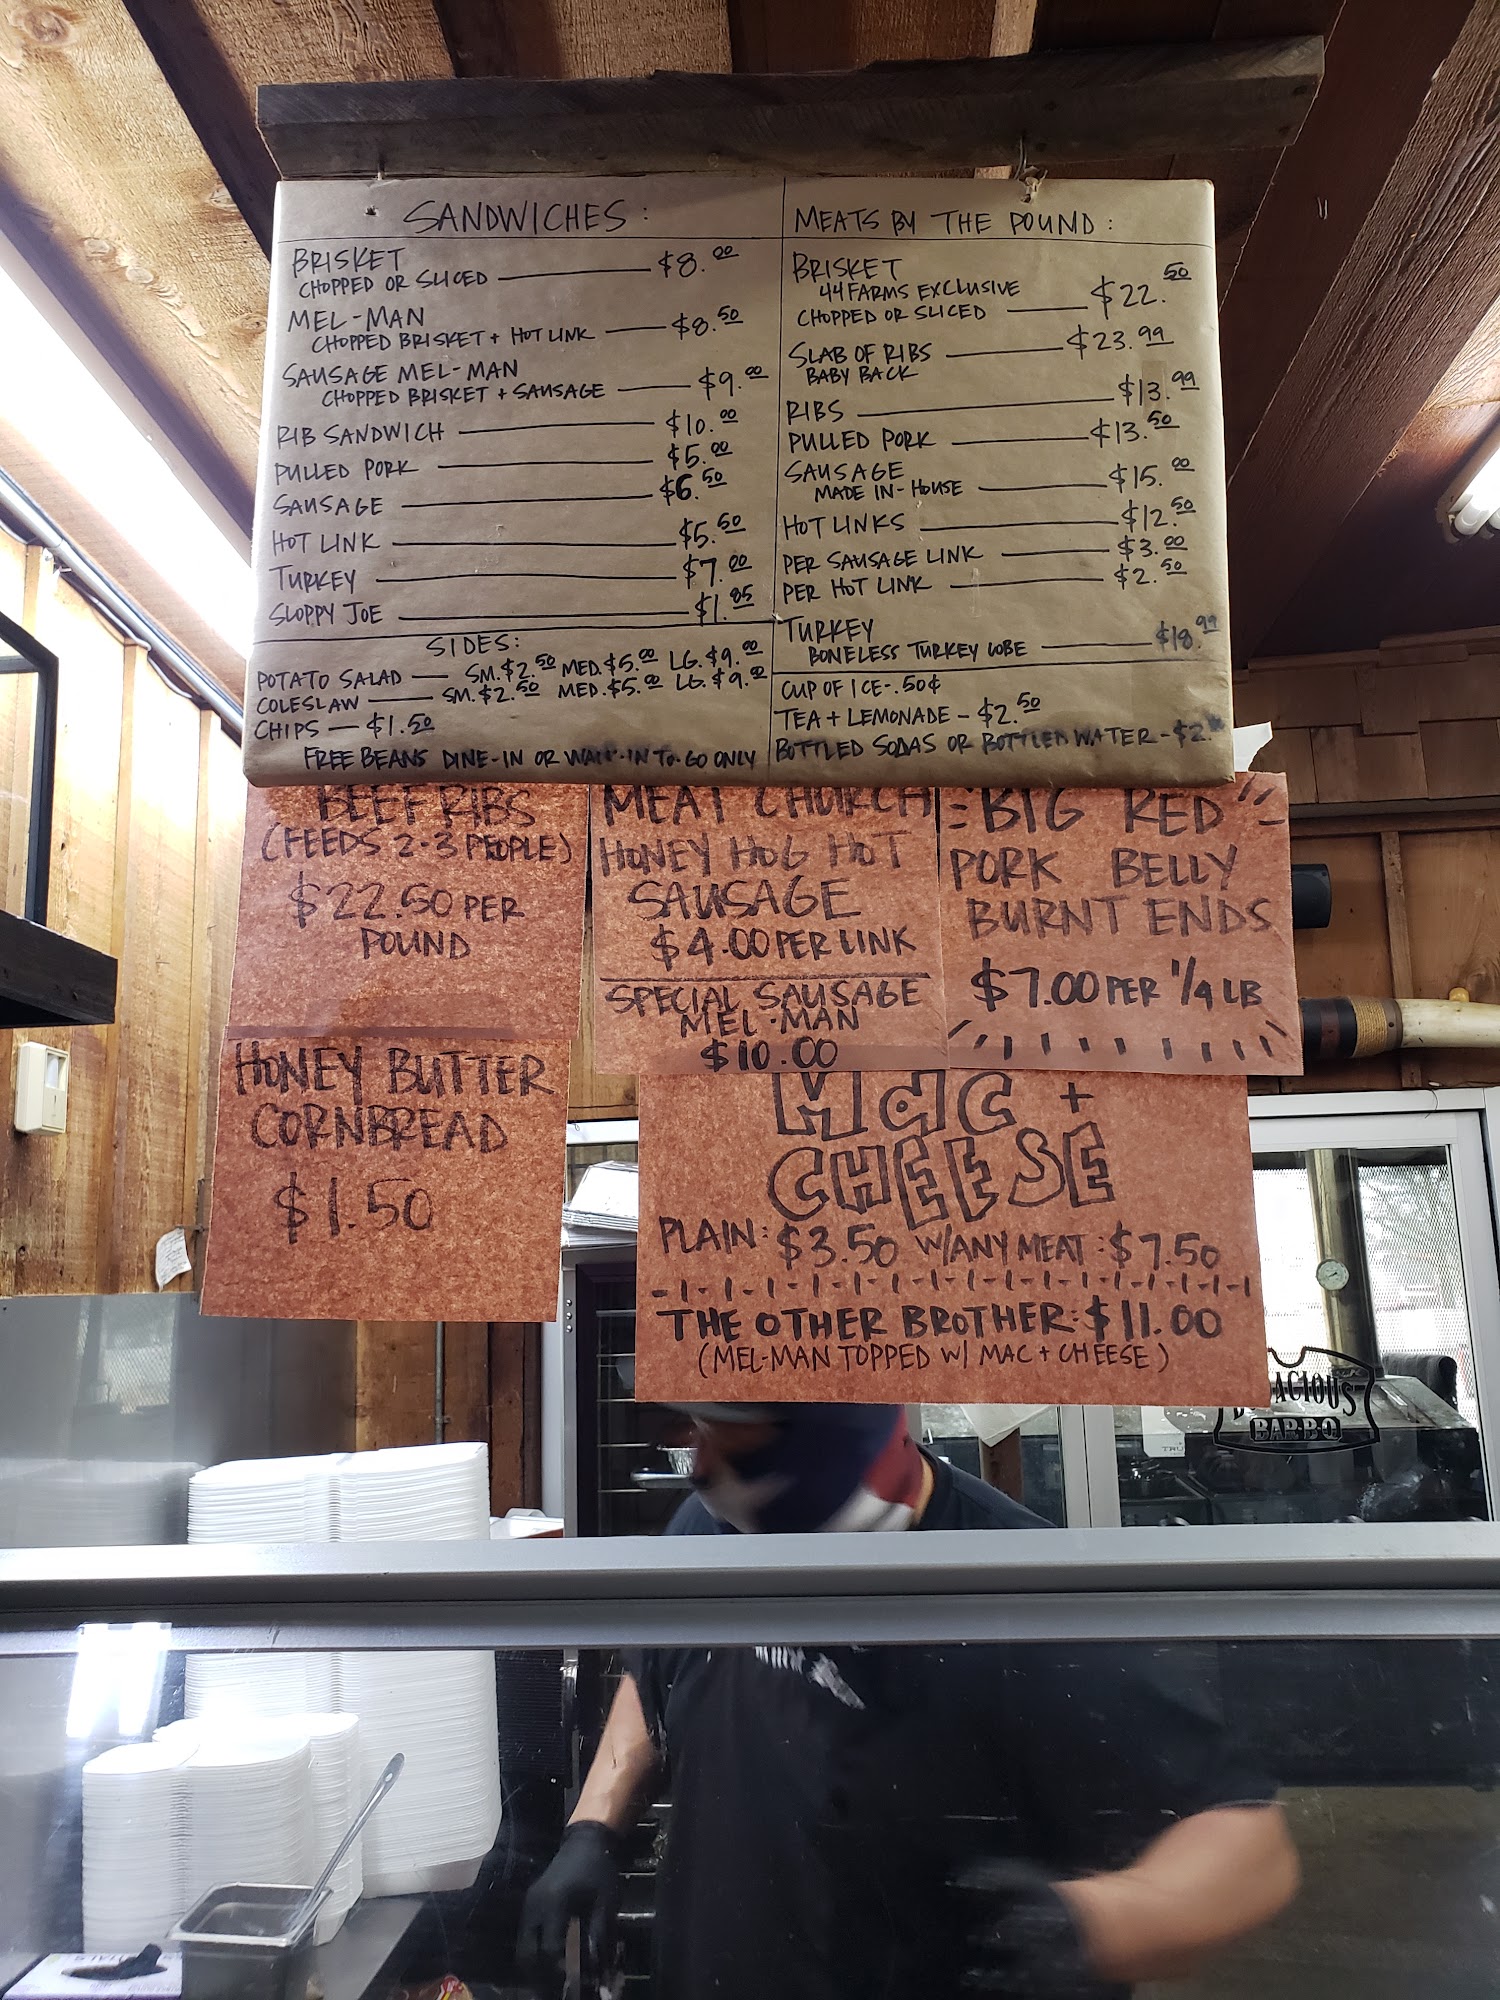 SANDWICHES:
BRISKET
CHOPPED OR SLICED $8.00
MEL-MAN
CHOPPED BRISKET + HOT LINK $8.50
SAUSAGE MEL-MAN
CHOPPED BRISKET + SAUSAGE $9.00
RIB SANDWICH $10.00
PULLED PORK $5.00
SAUSAGE $6.50
HOT LINK $5.50
TURKEY $7.00
SLOPPY JOE $1.85
SIDES:
POTATO SALAD SM. $2.50 MED. $5.00 LG. $9.00
COLESLAW SM. $2.50 MED. $5.00 LG. $9.00
CHIPS - $1.50
FREE BEANS DINE-IN OR WALK-IN TO-GO ONLY
MEATS BY THE POUND:
BRISKET
44 FARMS EXCLUSIVE
CHOPPED OR SLICED $22.50
SLAB OF RIBS $23.99
BABY BACK
RIBS $13.99
PULLED PORK $13.50
SAUSAGE
MADE IN-HOUSE $15.00
HOT LINKS $12.50
PER SAUSAGE LINK $3.00
PER HOT LINK $2.50
TURKEY
BONELESS TURKEY LOBE $18.99
CUP OF ICE - .50¢
TEA + LEMONADE - $2.50
BOTTLED SODAS OR BOTTLED WATER - $2.
BEEF RIBS
(FEEDS 2-3 PEOPLE)
$22.50 PER
POUND
HONEY BUTTER
CORNBREAD
$1.50
MEAT CHURCH
HONEY HOG HOT
SAUSAGE
$4.00 PER LINK
SPECIAL SAUSAGE
MEL-MAN
$10.00
BIG RED
PORK BELLY
BURNT ENDS
$7.00 PER 1/4 LB
MAC +
CHEESE
PLAIN: $3.50 W/ANY MEAT: $7.50
THE OTHER BROTHER: $11.00
(MEL-MAN TOPPED W/ MAC + CHEESE)
BAR-B-Q